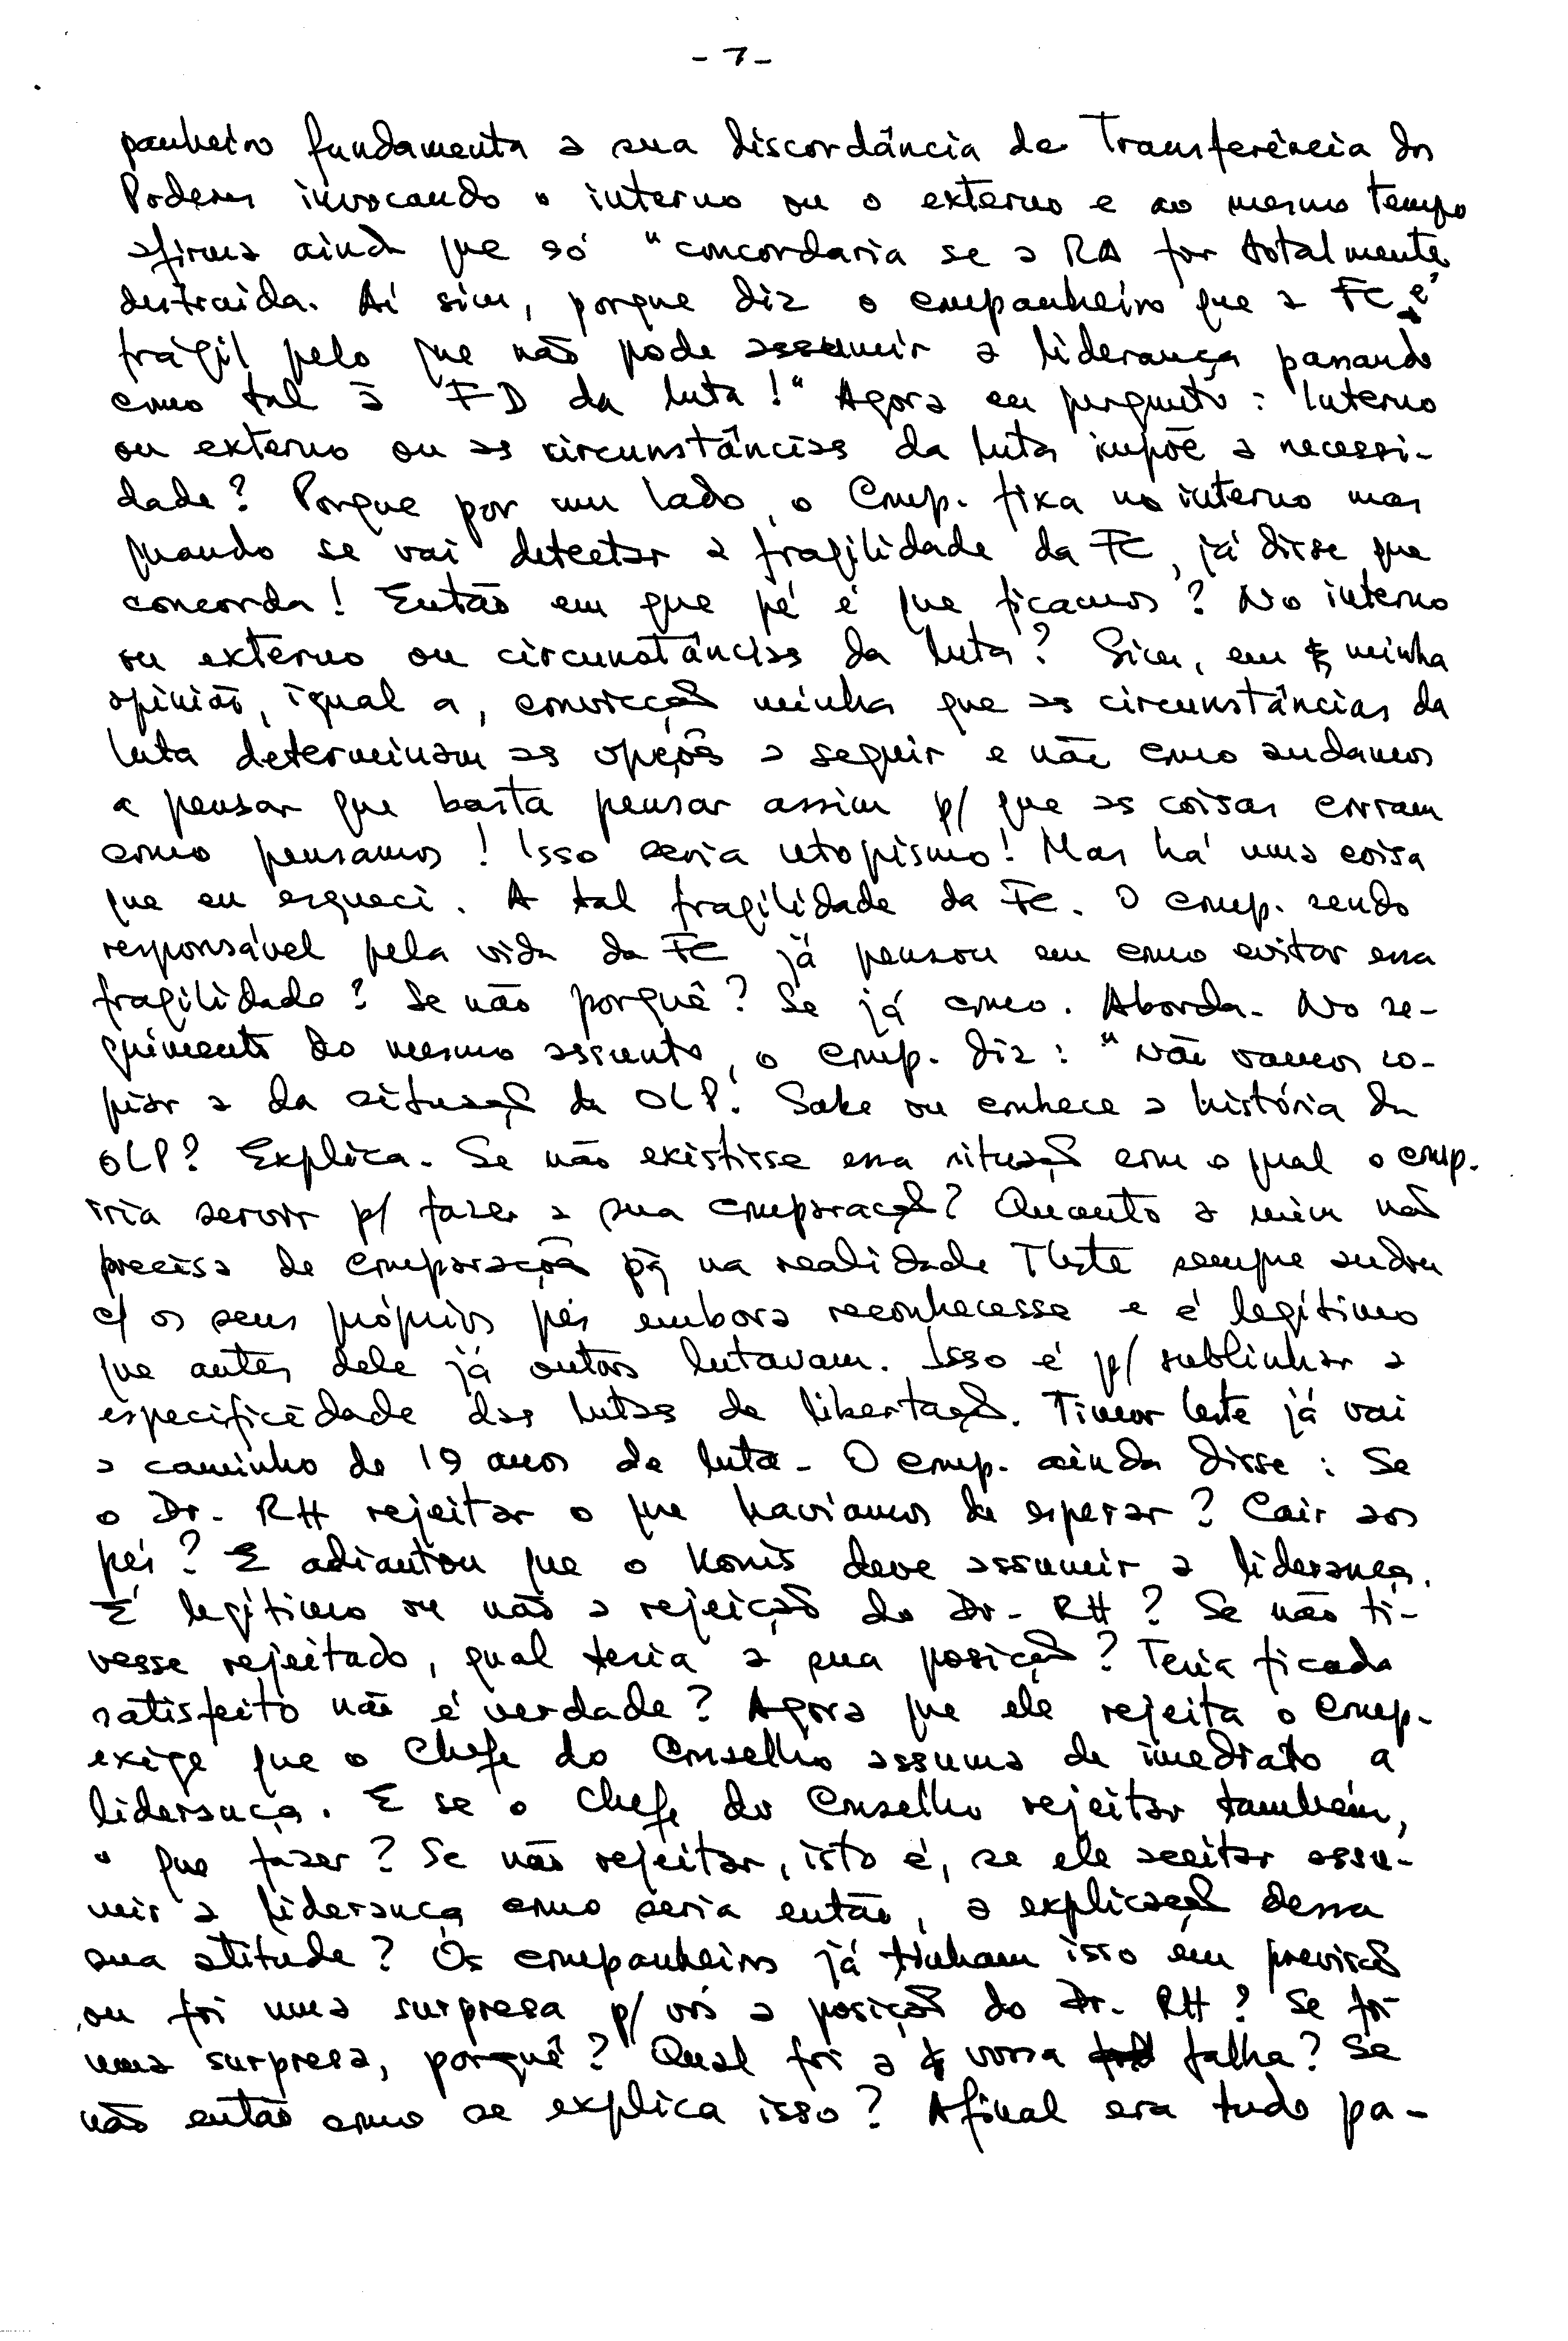 - 7 -
panheiro fundamenta a sua discordância de Transferência dos
Poderes invocando o interno ou o externo e ao mesmo tempo
afirma ainda que só "concordaria se a RA for totalmente
destruida. Aí sim, porque diz o companheiro que a FC é
frágil pelo que não pode assumir a liderança passando
como tal à FD da luta!" Agora eu pergunto: Interno
ou externo ou as circunstâncias da luta impõe a necessi-
dade? Porque por um lado, o Comp. fixa no interno mas
quando se vai detectar a fragilidade da FC, já disse que
concorda! Então em que pé é que ficamos? No interno
ou externo ou circunstâncias da luta? Sim, em minha
opinião, igual a, convicção minha que as circunstâncias da
luta determinam as opções a seguir e não como andamos
a pensar que basta pensar assim p/ que as coisas corram
como pensamos! Isso seria utopismo! Mas há uma coisa
que eu esqueci. A tal fragilidade da FC. O comp. sendo
responsável pela vida da FC já pensou em como evitar essa
fragilidade? Se não porquê? Se já como. Aborda. No se-
guimento do mesmo assunto, o comp. diz: "Não vamos co-
piar a da situação da OLP". Sabe ou conhece a história da
OLP? Explica. Se não existisse essa situação com o qual o comp.
iria servir p/ fazer a sua comparação? Quanto a mim não
precisa de comparação pq na realidade TLeste sempre andou
c/ os seus próprios pés embora reconhecesse e é legítimo
que antes dele já outros lutavam. Isso é p/ sublinhar a
especificidade das lutas de libertação. Timor Leste já vai
a caminho de 19 anos de luta. O comp. ainda disse: Se
o Dr. RH rejeitar o que haviamos de esperar? Cair aos
pés? E adiantou que o Konis deve assumir a liderança.
É legítimo ou não a rejeição do Dr. RH? Se não ti-
vesse rejeitado, qual teria a sua posição? Teria ficado
satisfeito não é verdade? Agora que ele rejeita o Comp.
exige que o Chefe do Conselho assuma de imediato a
liderança. E se o Chefe do Conselho rejeitar também,
o que fazer? Se não rejeitar, isto é, se ele aceitar assu-
mir a liderança como seria então, a explicação dessa
sua atitude? Os companheiros já tinham isso em previsão
ou foi uma surpresa p/ vós a posição do Dr. RH? Se foi
uma surpresa, porquê? Qual foi a vossa falha? Se
não então como se explica isso? Afinal era tudo pa-